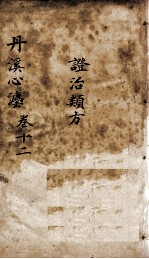 證治類方
丹溪心法 卷十二